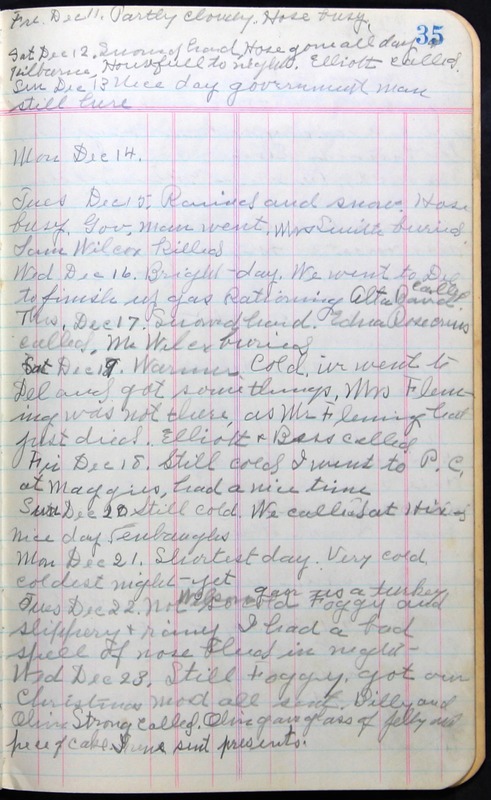 Fri. Dec 11. Partly cloudy. Hose busy.
35
Sat Dec 12. Snowed hard, Hose gone all day
Kilburne, House full to night. Elliott called.
Sun Dec 13 Nice day government man
still here
Mon Dec 14.
Tues Dec 15. Rained and snow. Hose
busy. Gov. man went, Mrs Smith buried.
Sam Wilcox killed
Wed Dec 16. Bright day. We went to Del
to finish up gas Rationing Alta called
Thu. Dec 17. Snowed hard. Edna Rosecrans
called, Mr Wilcx buried
Sat Dec 19. Warmer Cold, we went to
Del and got some things, Mrs Flem-
ing was not there, as Mr Fleming had
just died. Elliott & Bess called
Fri Dec 18. Still cold I went to P. C.
at Maggies, had a nice time
Sun Dec 20 Still cold. We called at Hixs
nice day
Mon Dec 21. Shortest day. Very cold
coldest night yet
Wilson gave us a turkey
Tues Dec 22. Not so cold Foggy and
slippery & rainy I had a bad
spell of nose bleed in night
Wed Dec 23. Still Foggy. got our
Christmas mail all sent. Dilly and
Olive Strong called. Olive gave glass of jelly and
piece of cake. June sent presents.